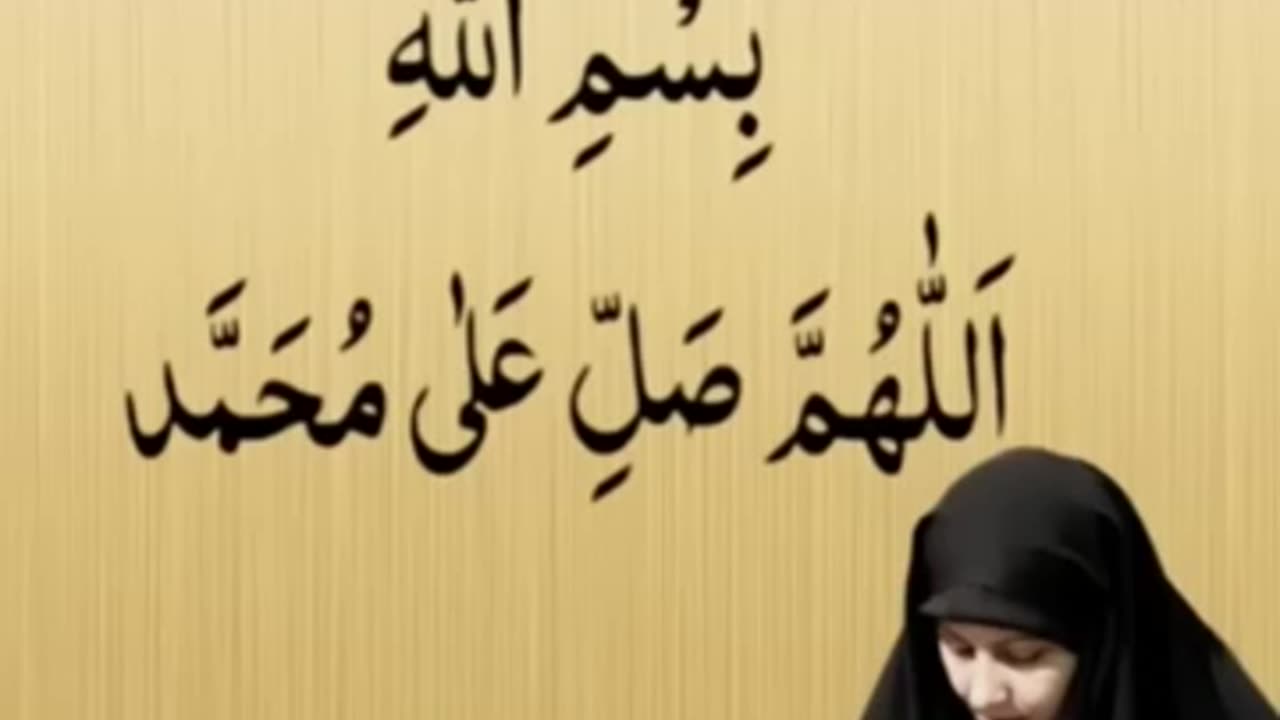 بِسْمِ اللّٰهِ
اَللّٰهُمَّ صَلِّ عَلٰى مُحَمَّد